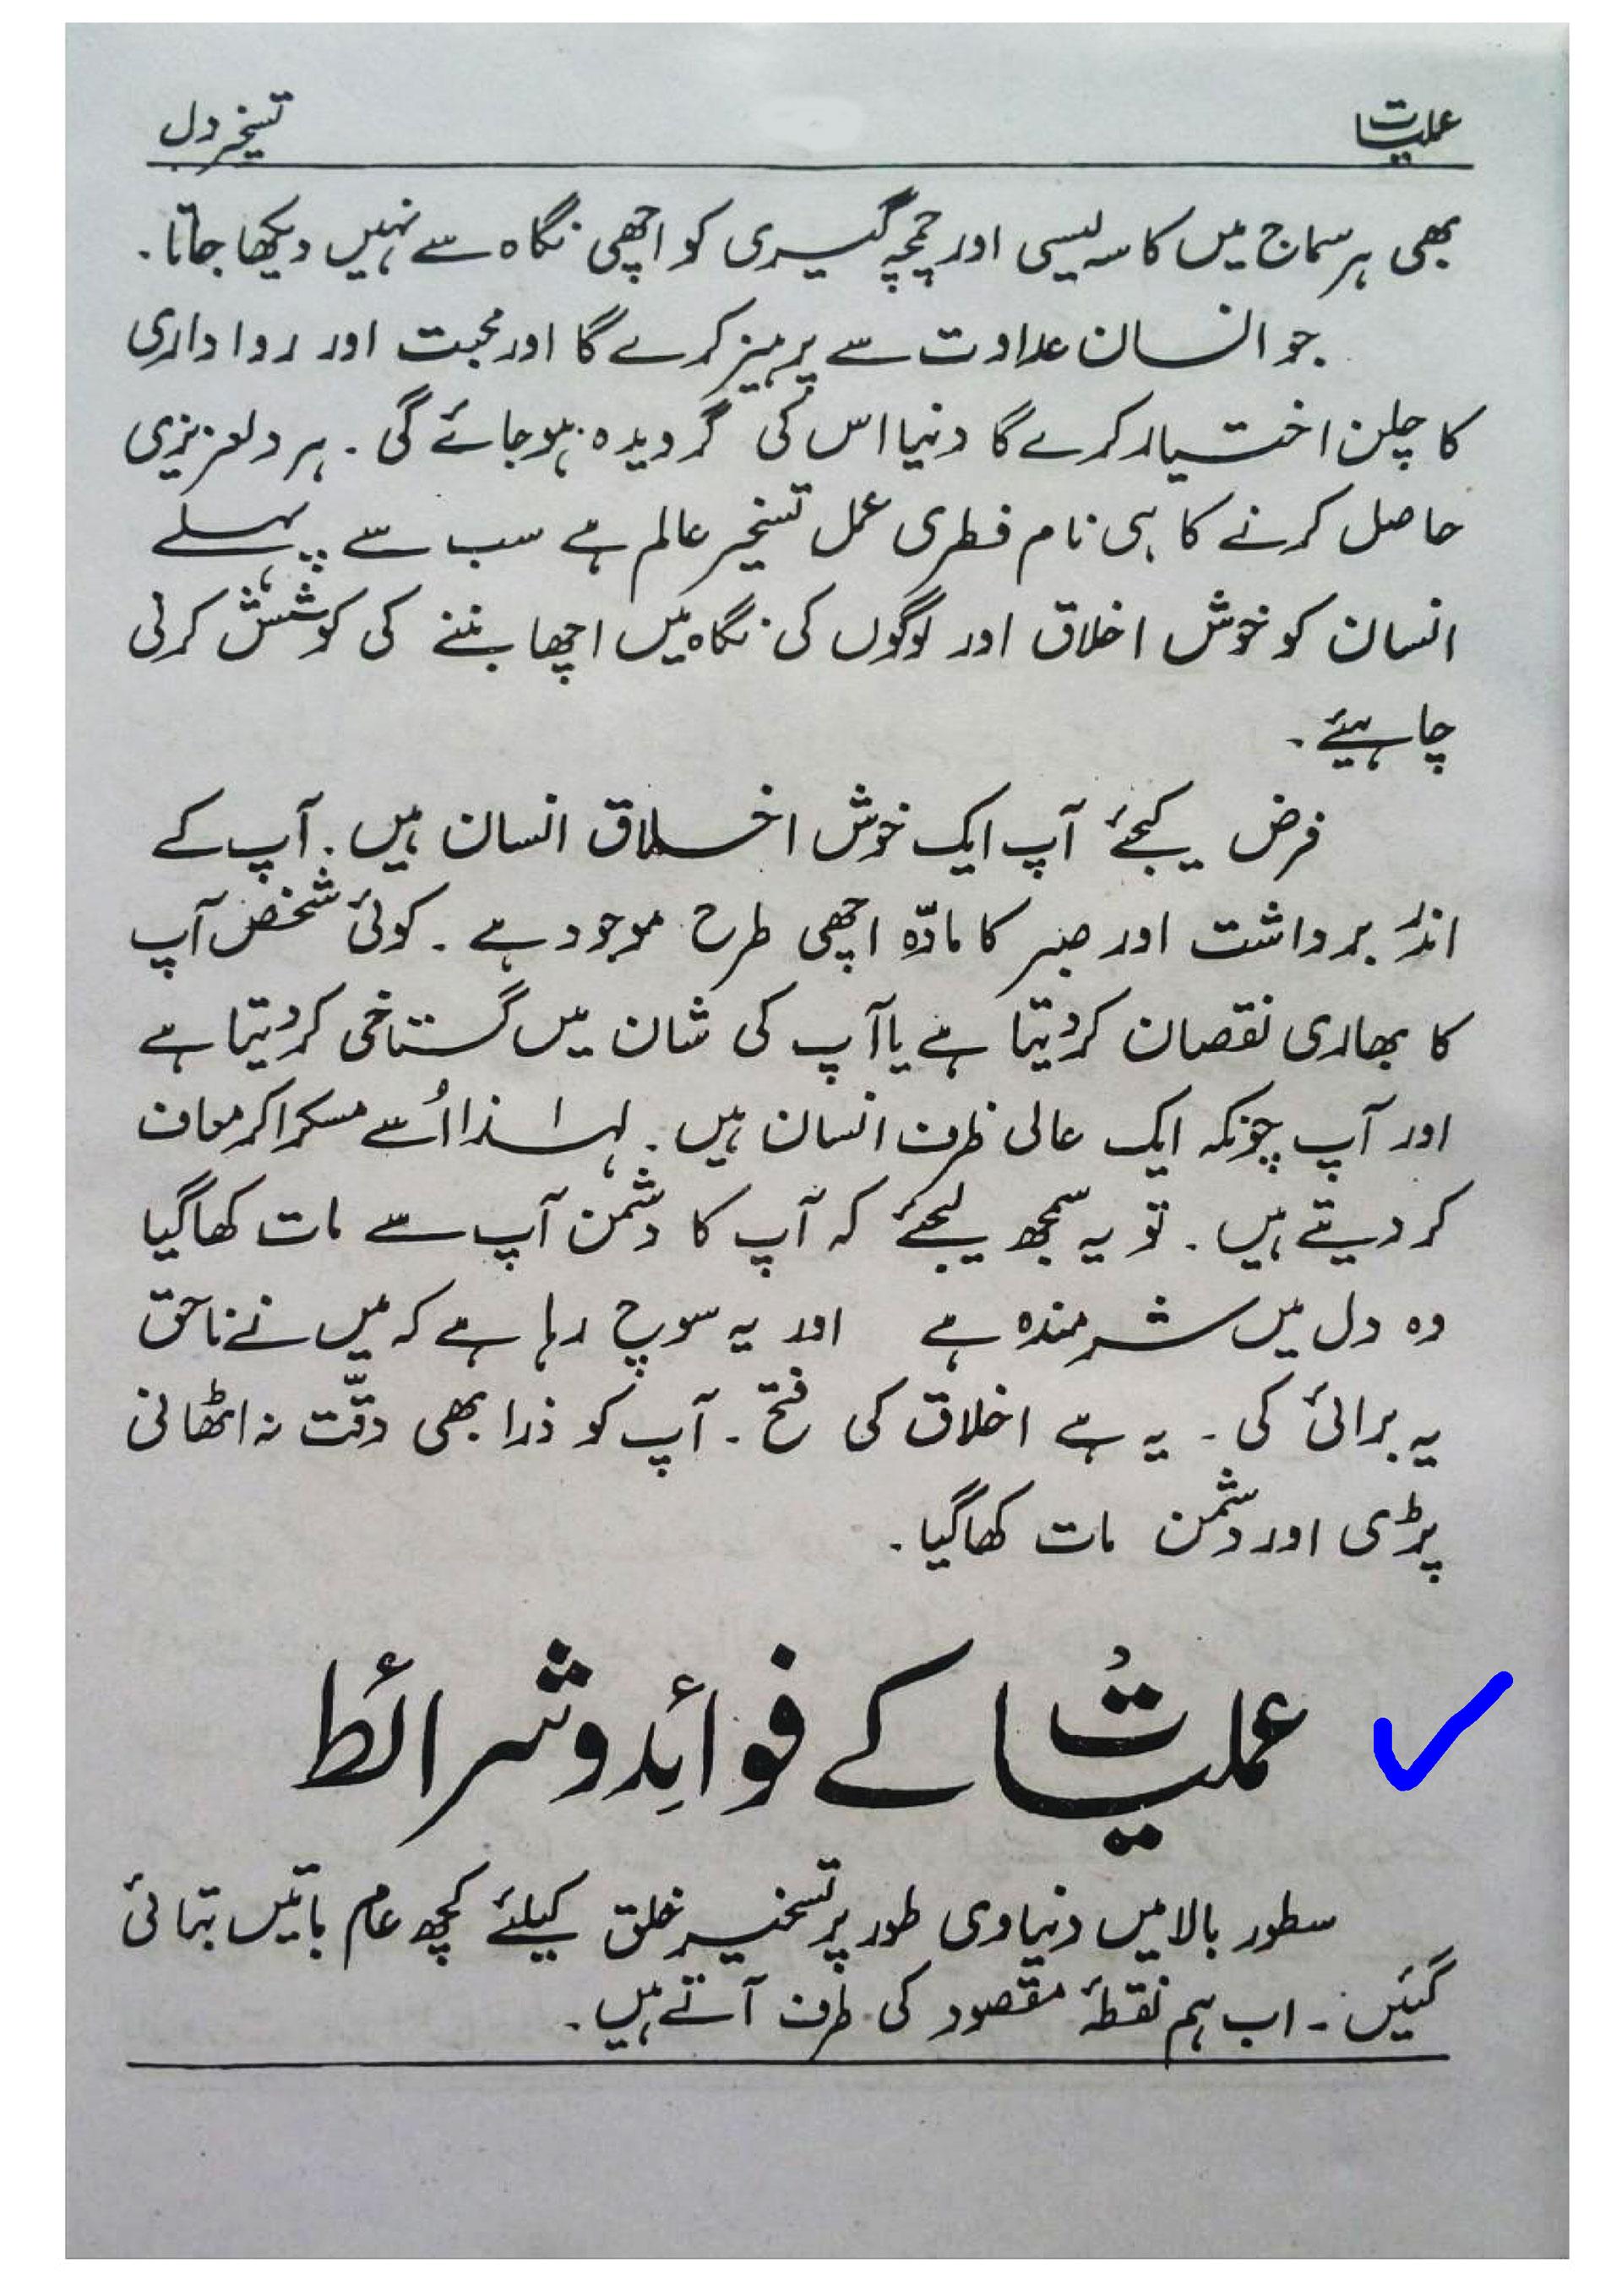 عملیات
تسخیر دل
بھی ہر سماج میں کاسہ لیسی اور چمچہ گیری کو اچھی نگاہ سے نہیں دیکھا جاتا۔
جو انسان عداوت سے پرہیز کرے گا اور محبت اور رواداری
کا چلن اختیار کرے گا دنیا اس کی گرویدہ ہو جائے گی۔ ہر دلعزیزی
حاصل کرنے کا ہی نام فطری عمل تسخیر عالم ہے سب سے پہلے
انسان کو خوش اخلاق اور لوگوں کی نگاہ میں اچھا بننے کی کوشش کرنی
چاہیئے۔
فرض کیجئے آپ ایک خوش اخلاق انسان ہیں۔ آپ کے
اندر برداشت اور صبر کا مادّہ اچھی طرح موجود ہے۔ کوئی شخص آپ
کا بھاری نقصان کر دیتا ہے یا آپ کی شان میں گستاخی کر دیتا ہے
اور آپ چونکہ ایک عالی ظرف انسان ہیں۔ لہٰذا اُسے مسکرا کر معاف
کر دیتے ہیں۔ تو یہ سمجھ لیجئے کہ آپ کا دشمن آپ سے مات کھا گیا
وہ دل میں شرمندہ ہے اور یہ سوچ رہا ہے کہ میں نے ناحق
یہ برائی کی۔ یہ ہے اخلاق کی فتح۔ آپ کو ذرا بھی دقّت نہ اٹھانی
پڑی اور دشمن مات کھا گیا۔
عملیاتُ کے فوائدِ و شرائط
سطور بالا میں دنیاوی طور پر تسخیر خلق کیلئے کچھ عام باتیں بتائی
گئیں۔ اب ہم نقطۂ مقصود کی طرف آتے ہیں۔